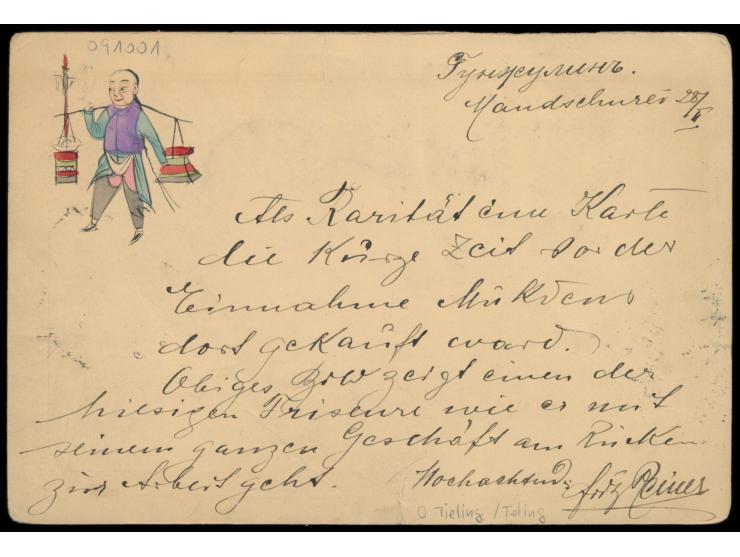 091001
Гунжулинъ.
Mandschurei 28/II
Als Rarität eine Karte
die kurze Zeit vor der
Einnahme Mukdens
dort gekauft ward.
Obiges Bild zeigt einen der
hiesigen Friseure wie er mit
seinem ganzen Geschäft am Rücken
zur Arbeit geht.
Hochachtend: Fritz Reiner
Tieling / Teling